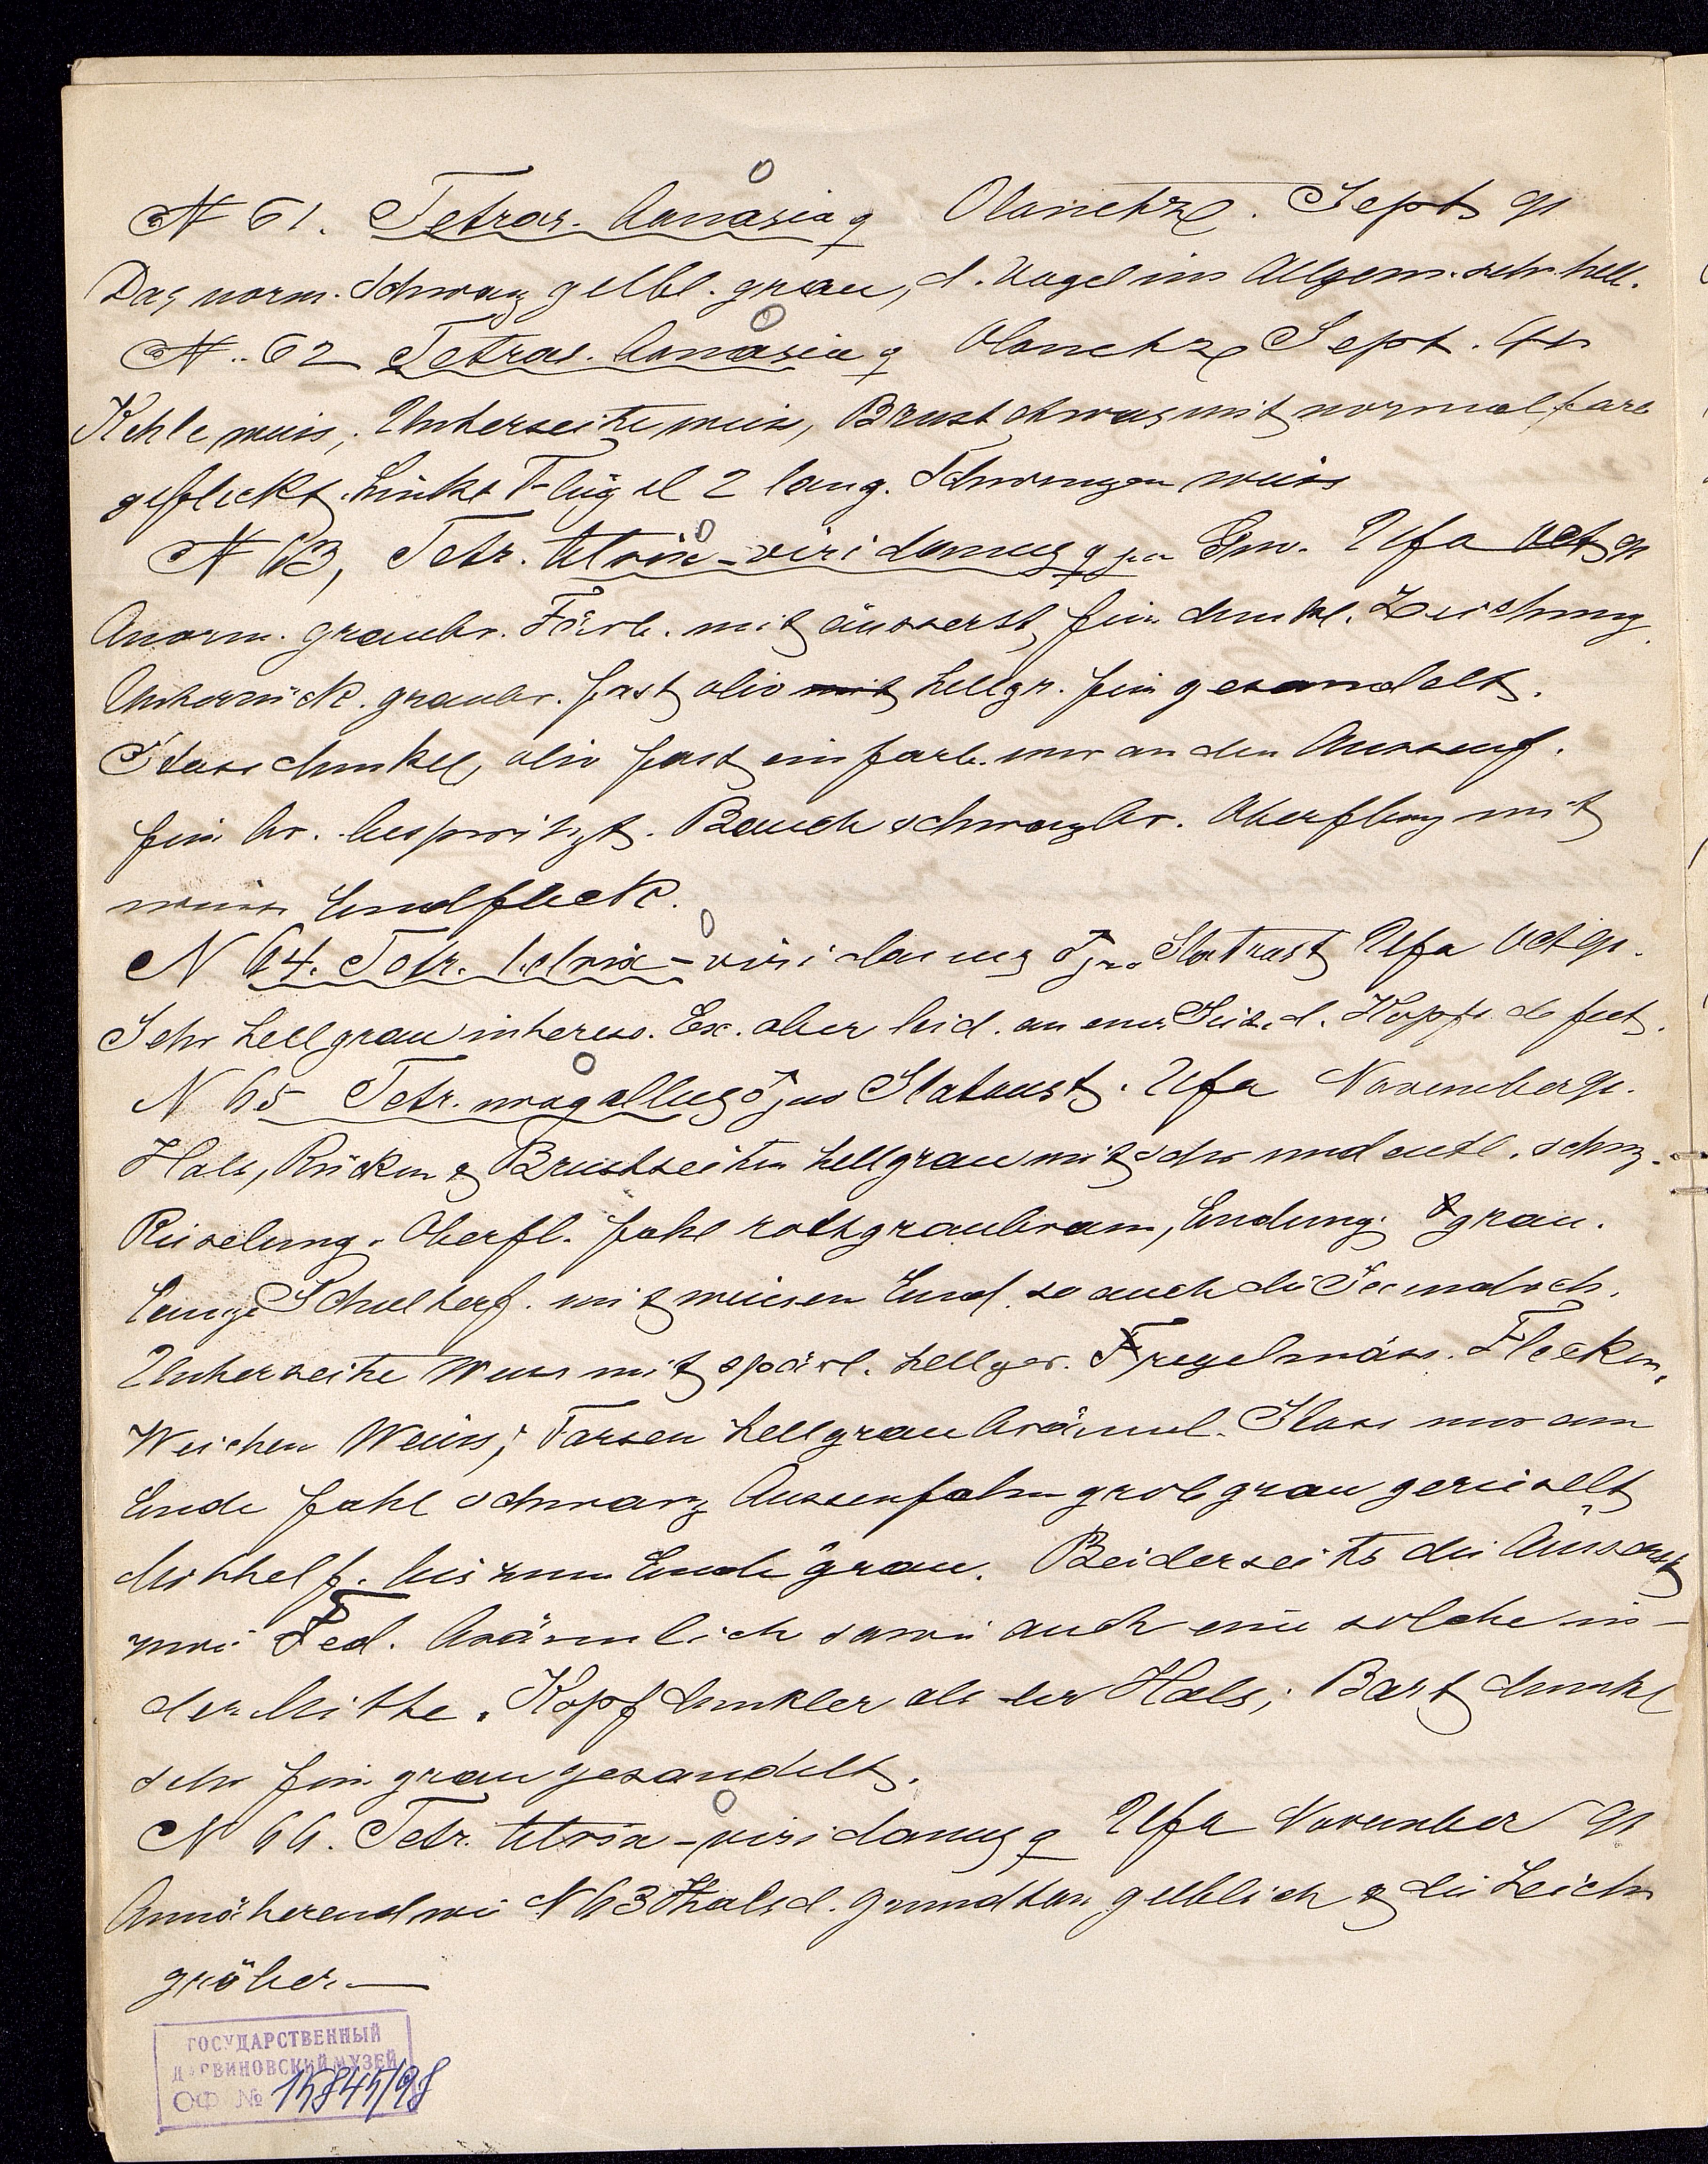 N 61. Tetras. bonasia ♀ Olonetz. Sept 91
Das norm. Schwarz gelbl. grau, d. Vogel im Allgem. sehr hell.
N. 62 Tetras. bonasia ♀ Olonetz Sept. 91
Kehle weiss, Unterseite weiss, Brust schwarz mit normalfarb
gefleckt. Linke Flügel 2 lang. Schwingen weiss
N 63, Tetr. tetrix-viridanus ♀ juv Gouv. Ufa Oct 91
Anorm. graubr. Färb. mit äusserst fein dunkl. Zeichnung.
Unterrück. graubr. fast oliv mit hellgr. fein gesandelt.
Stoss dunkel, oliv fast einfarb. nur an den Aussenf.
fein br. bespritzt. Bauch schwarzbr. Oberflug mit
weiss Endfleck.
N 64. Tetr. tetrix-viridanus ♂ juv. Slatoust Ufa Oct 91.
Sehr hellgrau interess. Ex. aber leid. an einer Seit. d. Kopfs defect.
N 65 Tetr. urogallus ♂ juv Slatoust. Ufa November 91.
Hals, Rücken & Brustseiten hellgrau mit sehr undeutl. schw.
Rieselung. Oberfl. fahl rothgraubraun, Endung. grau.
Lange Schulterf. mit weissen End. so auch die Secundsch.
Unterseite Weiss mit spärl. hellgr. regelmäss. Flecken,
Weichen Weiss; Tarsen hellgrau bräunl. Stoss nur am
Ende fahl schwarz Aussenfahn grob grau gerieselt
Mittelf. bis zum Ende grau. Beiderseits die Äusserst
zwei Fed. bräunlich sowie auch eine solche in-
der Mitte. Kopf dunkler als der Hals; Bart dunkel
sehr fein grau gesandelt.
N 66. Tetr. tetrix-viridanus ♀ Ufa November 91
Annäherend wie N 63 d. Grundton gelblich & die Zeichn
gröber—
ГОСУДАРСТВЕННЫЙ
ДАРВИНОВСКИЙ МУЗЕЙ
ОФ № 15845/98